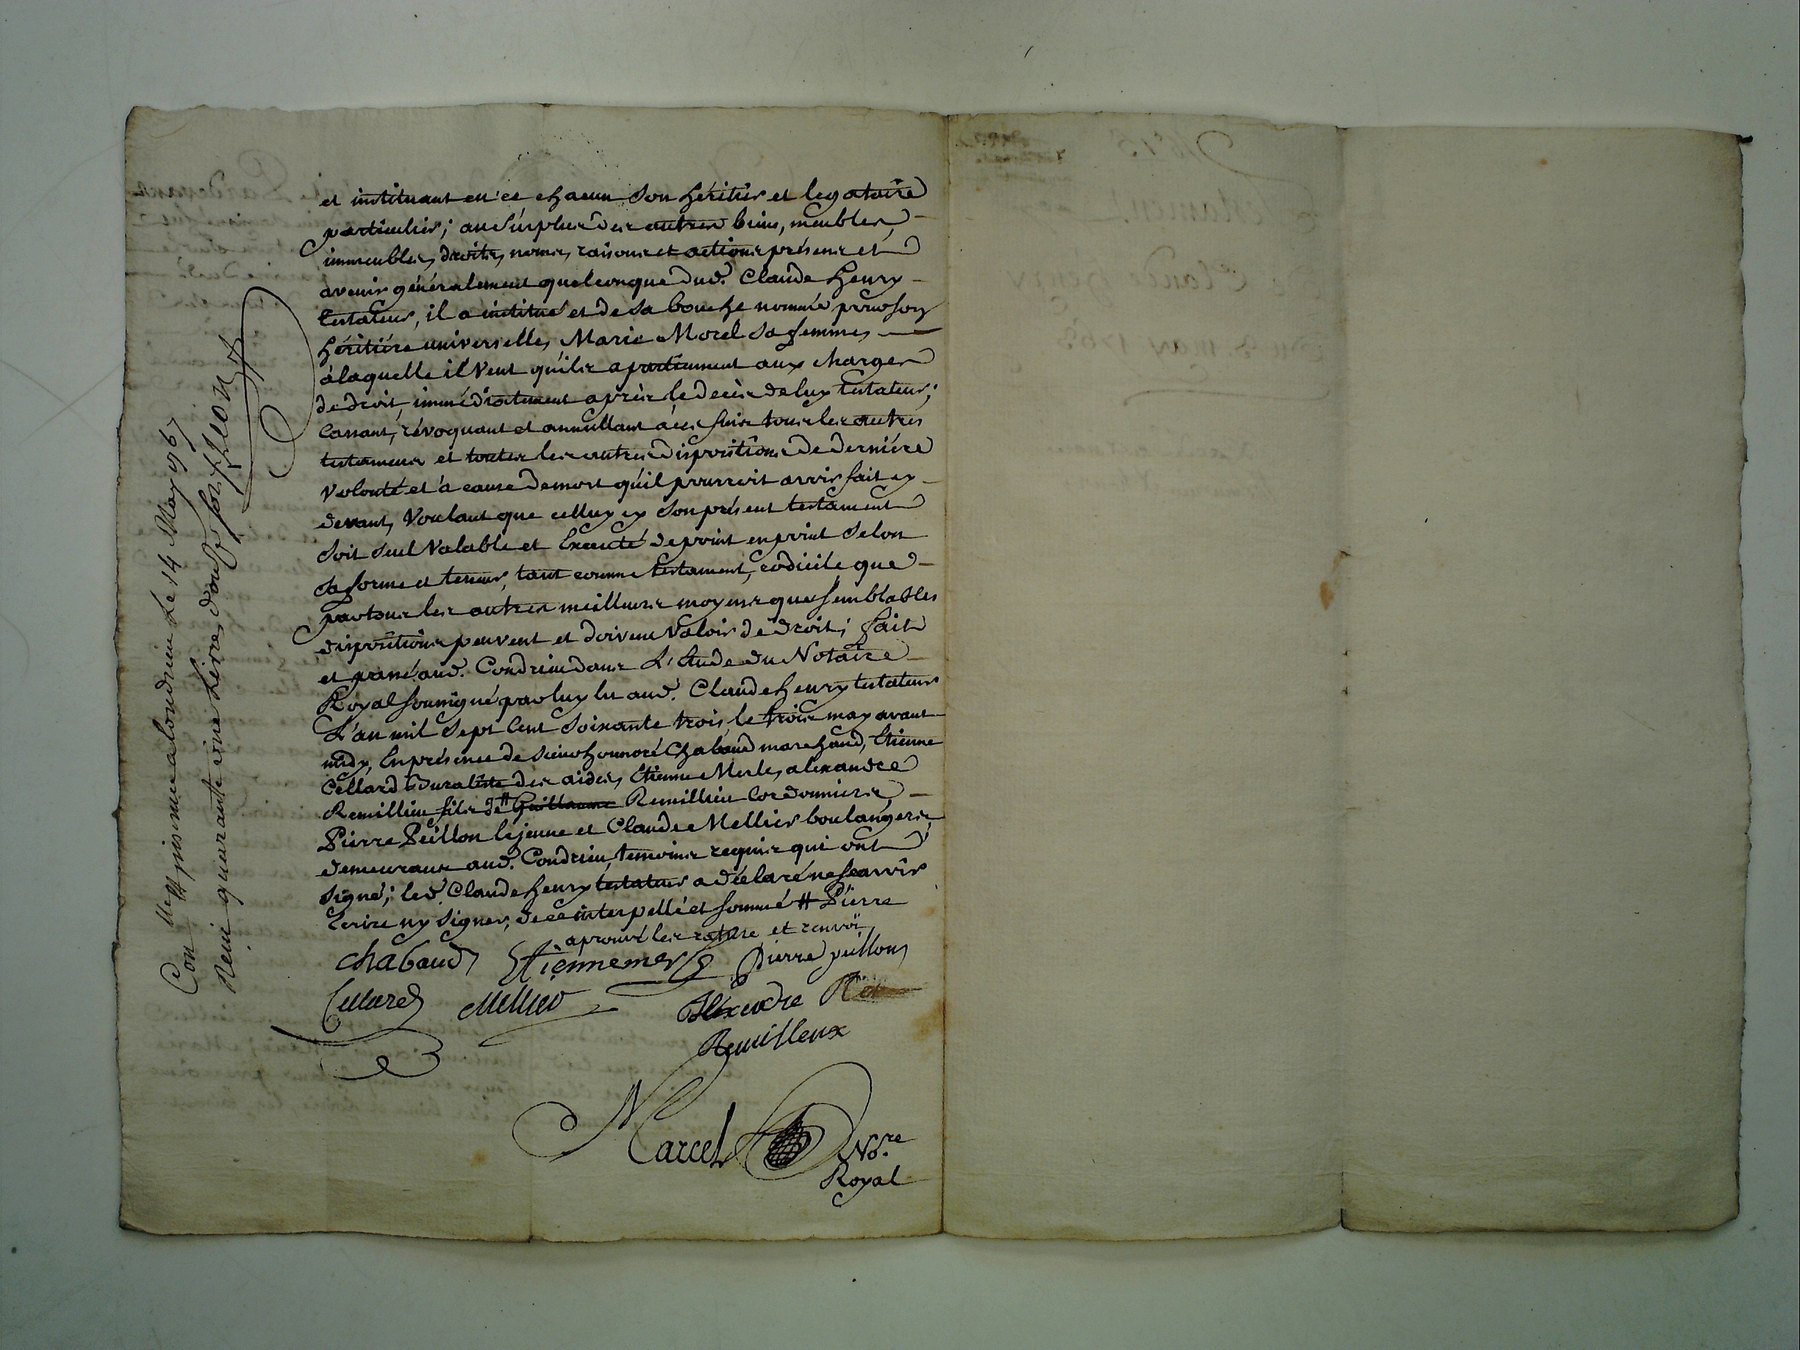 et instituant en ce chacun son héritier et legataire
particulier; au surplus des autres biens, meubles,
immeubles, droits, noms, raisons et actions présens et
avenir généralement quelconque dud. Claude henry
testateur, il a institué et de sa bouche nommé pour son
héritiére universelle, Marie Morel sa femme,
a laquelle il veut qu'ils apartiennent aux charges
de droit, immédiatement aprés le decés de luy testateur;
Cassant, révoquant et annullant a ces fins tous les autres
testamens et toutes les autres dispositions de derniére
volonté et a cause de mort qu'il pourroit avoir fait cy
devant, voulant que celluy cy son présent testament
soit seul valable et Executé de point en point selon
sa forme et teneur, tant comme testament, codicile que
par tous les autres meilleurs moyens que semblables
dispositions peuvent et doivent valoir de droit; fait
et passé aud. Condrieu dans L'Etude du Notaire
Royal soussigné par luy lu aud. Claude henry testateur
L'an mil sept cent soixante trois le trois may avant
midy, En présence de sieur honnoré Chabaud marchand, Etienne
Cellard Buraliste des aides, Etienne Merle, alexandre
Remillieu fils de # Guillaume Remillieu Cordonniers,
Pierre Peillon le jeune et Claude Mellier boulangers,
demeurans aud. Condrieu, temoins requis qui ont
signé; led. Claude henry testateur a déclaré ne sçavoir
Ecrire ny signer, de ce interpellé et sommé # Pierre
aprouvé les rature et renvoy
chabaud Etienne merle Pierre peillon
Cellard Mellier Alexandre
Remilleux
Marcel No.re
Royal
Con.lle & insinué a Condrieu Le 14 May 1763
Reçu quarante une Livres, douze sols